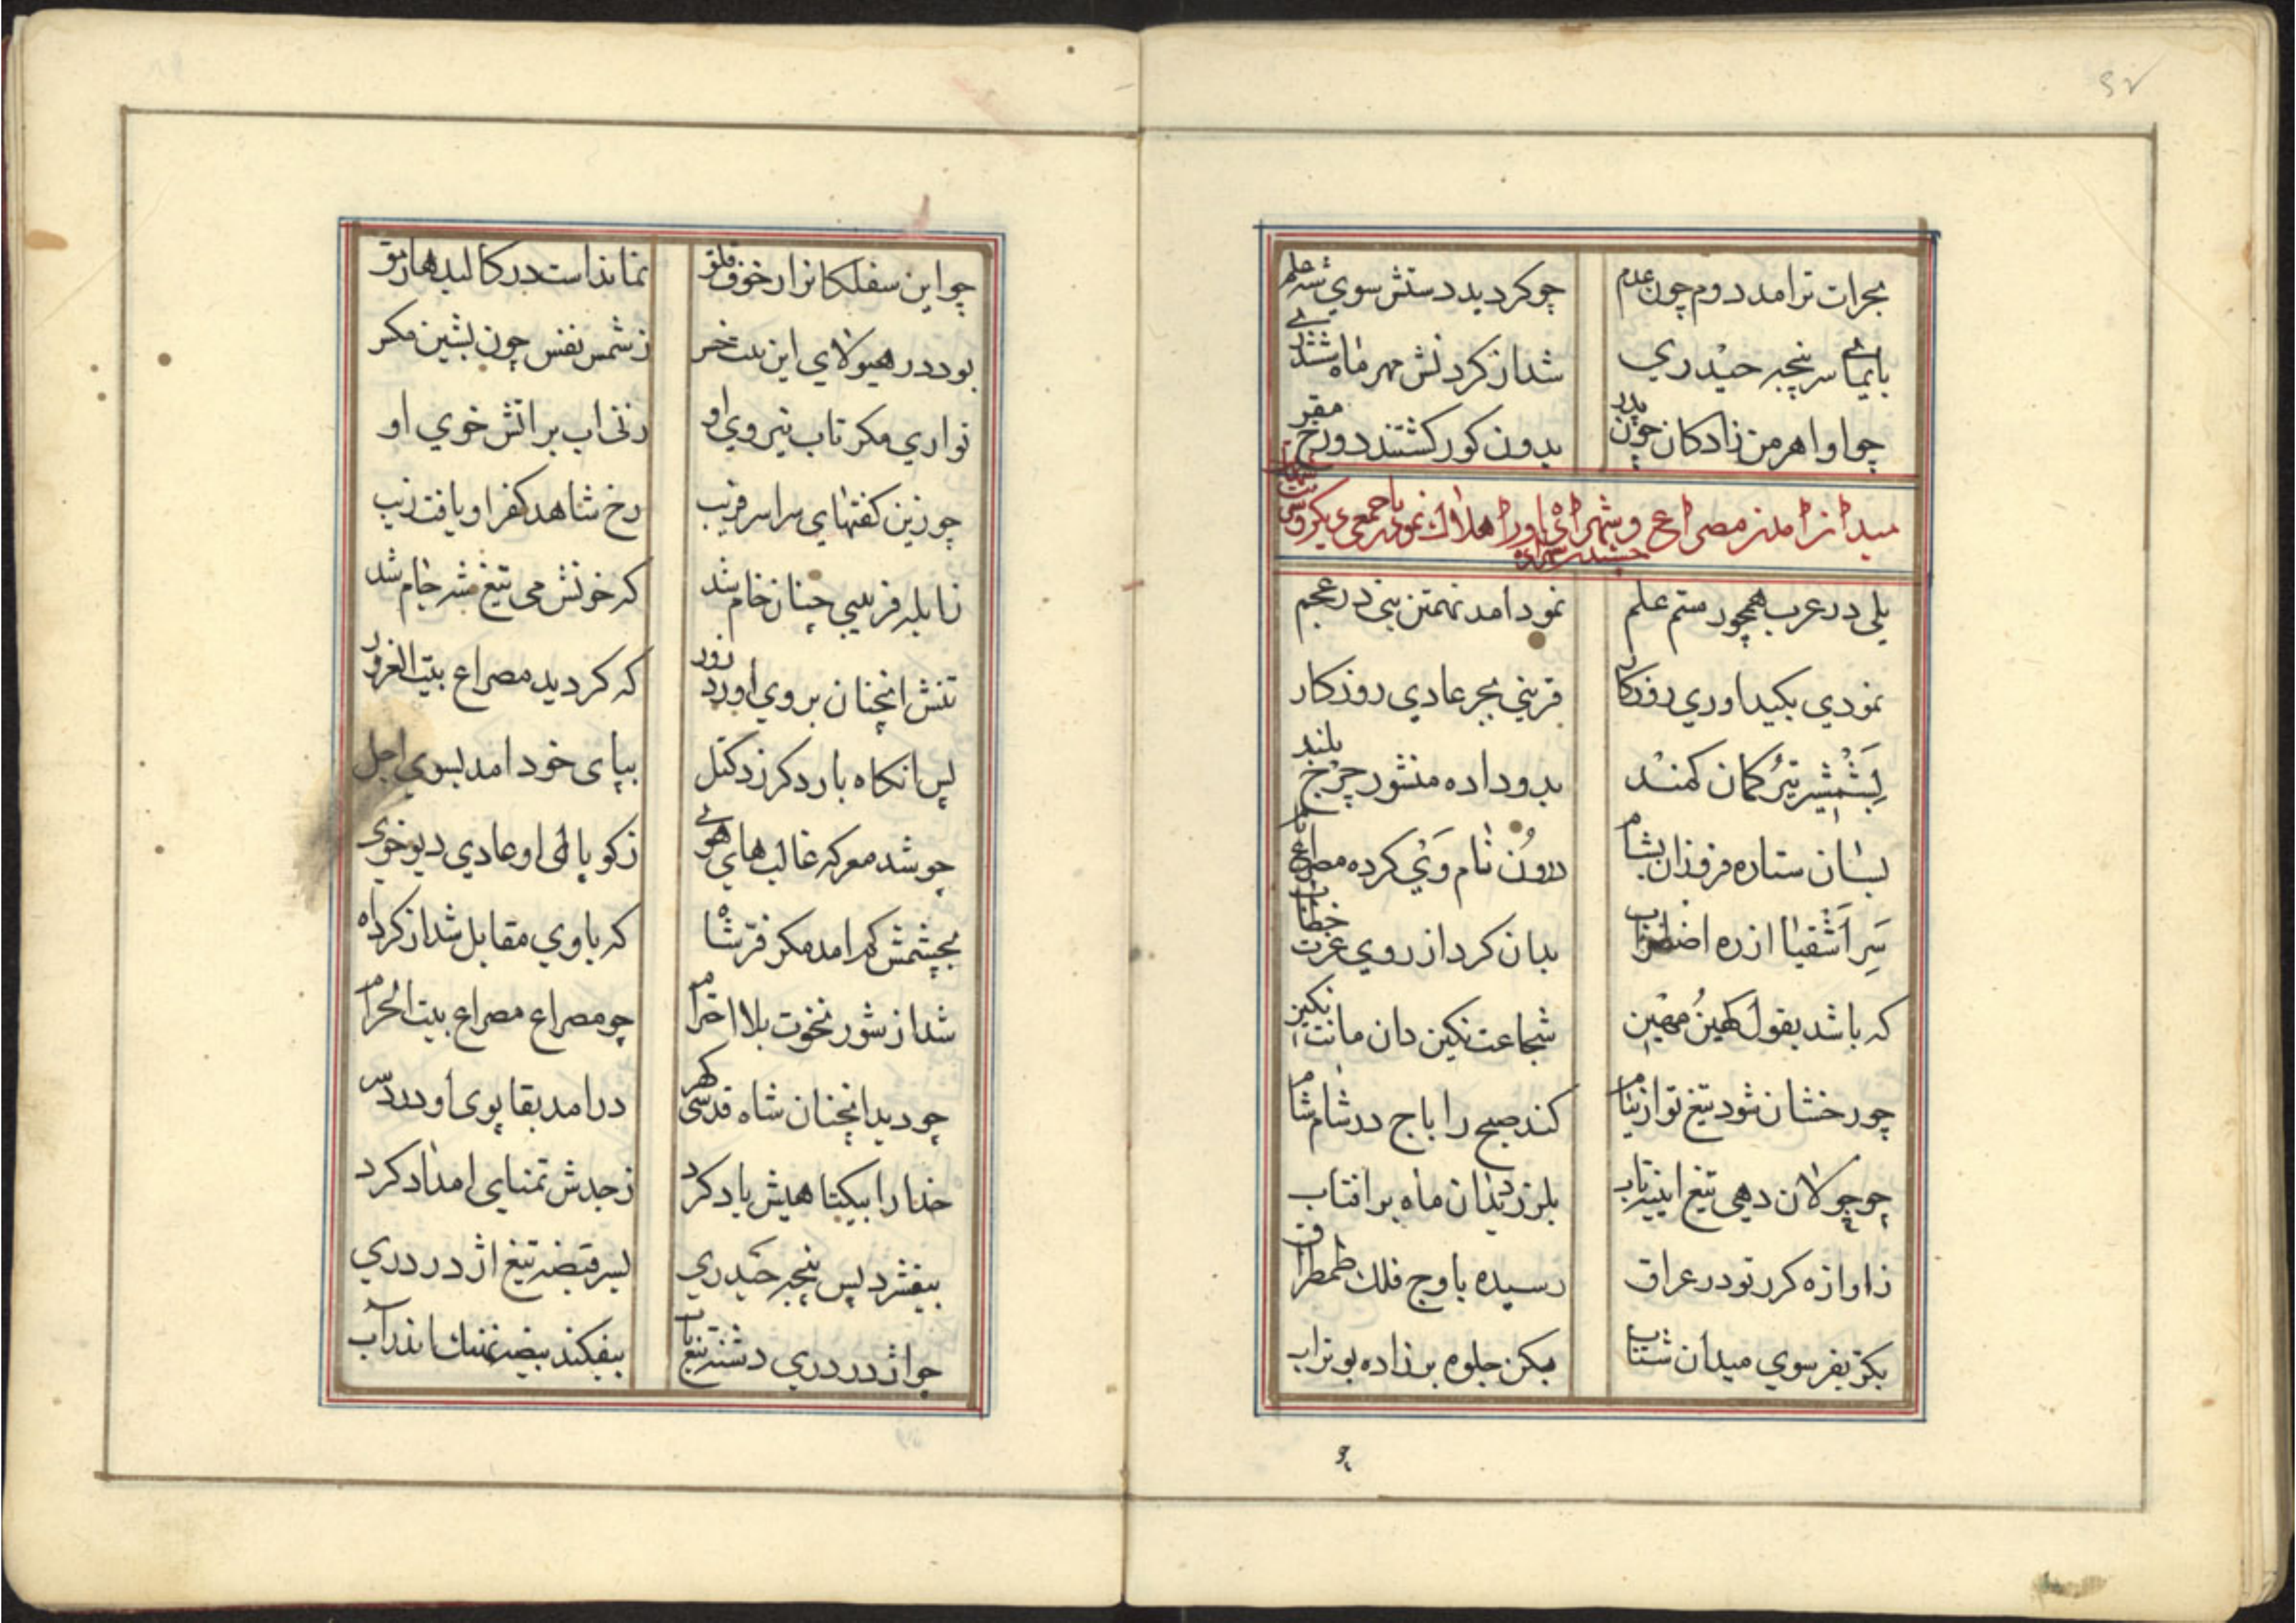 ۶۲
بجرات ترامد دوم چون عدم چو کردید دستش سوي شه علم
بایمای سرپنجه حیدري شد از کردنش مهر ماه ششدري
چو او اهرمن زادکان چون پدر بدون کور کشتند دوزخ مقر
میدان امدن مصراع و شهزاده اورا هلاک نمودن
یلی در عرب همچو رستم علم نمود امد تهمتن بنی در عجم
نمودي بکید اوري روزکار قریني بجر عادي روزکار
بشمشیر تیر کمان کمند بدو داده منشور چرخ بلند
بسان ستاره فروزان بشام درون نام وي کرده مصراع نام
سر اشقیا از ره اضطراب بدان کرد از روي عزت خطاب
که باشد بقول کهین مهین شجاعت نکین دان مانت نکین
چو رخشان شود تیغ تو از نیام کند صبح را باج در شام شام
چو جولان دهی تیغ ایینه تاب بلرزد بدان ماه بر افتاب
ز اوازه کرر تو در عراق رسیده باوج فلك طمطراق
بکن یفر سوي میدان شتاب مکن جلوه بر زاده بوتراب
چو
چو این سفلکانرا ز خوف قلق نماند است در کالبد هار مق
بود در هیولاي این بت خر ز شمس نفس چون بشین مکر
نواري مکر تاب نیروي او زنی اب بر اتش خوي او
چو زین کفتهاي سراسر فریب رخ شاهد کفر او یافت زیب
ز ابله فریبي چنان خام شد که خونش می تیغ شه جام شد
تنش انچنان بروي اورد زور که کردید مصراع بیت الغرور
پس انکاه بار د کرزد کتل بپای خود امد بسوي اجل
چو شد معرکه غالب هاي هوي ز کوپالی او عادي دیو خوی
بچشمش کم امد مکر فرشاه که باوي مقابل شد از کرد راه
شد از شور نخوت بلا احترام چو مصراع مصراع بیت الحرام
چو دید انچنان شاه قدسی کهر در امد بقاپوی او در دسر
خدا را بیکتاهیش یاد کرد ز جدش تمنای امداد کرد
بیفشرد پس پنجه حیدري بسر قبضه تیغ اژدر دري
چو اژدر دري دشته تیغ تاب بیفکند بیضه نهنك اندر آب